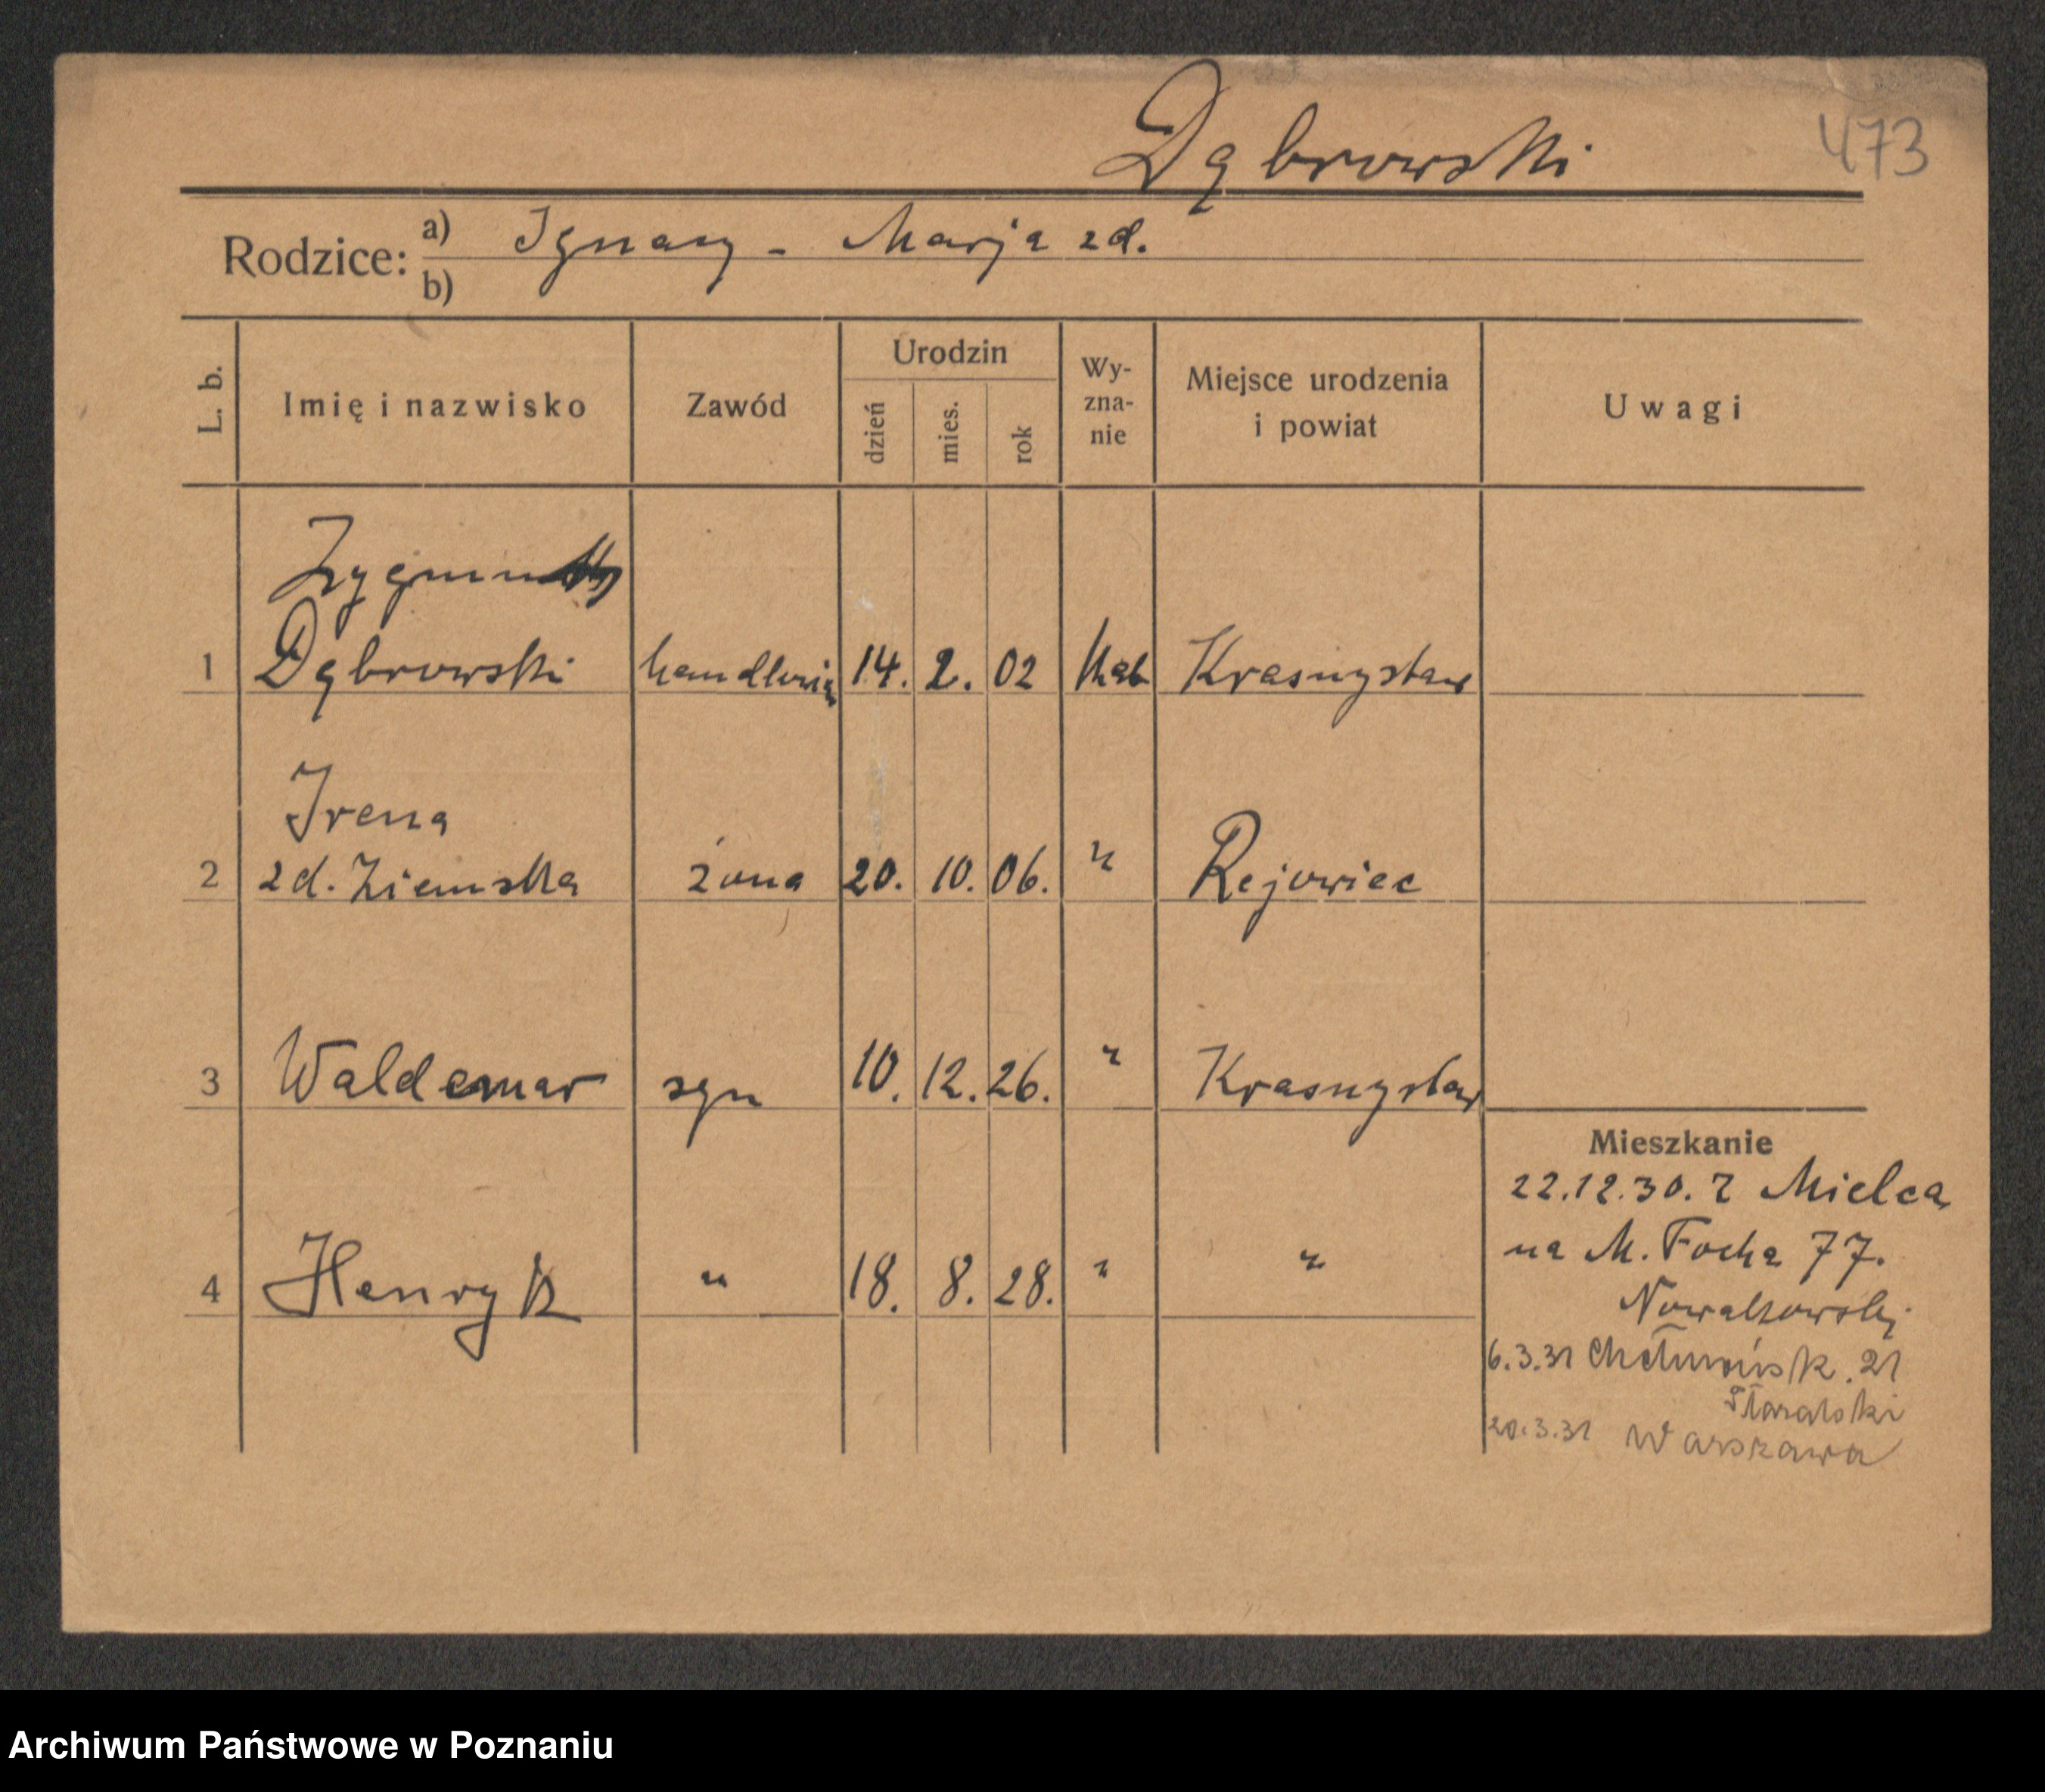 Dąbrowski 473
Rodzice: a) Ignacy - Marja zd.
b)
L. b. Imię i nazwisko Zawód Urodzin dzień mies. rok Wy-zna-nie Miejsce urodzenia i powiat Uwagi
Zygmunt
1 Dąbrowski handlowiec 14. 2. 02 Krasnystaw
Irena
2 zd. Ziemska żona 20. 10. 06. " Rejowiec
3 Waldemar syn 10. 12. 26. " Krasnystaw
Mieszkanie
22.12.30. z Mielca
na M. Focha 77.
4 Henryk " 18. 8. 28. " "
Nowakowski
6.3.31 Chełmińsk. 21
20.3.31 Warszawa
Archiwum Państwowe w Poznaniu